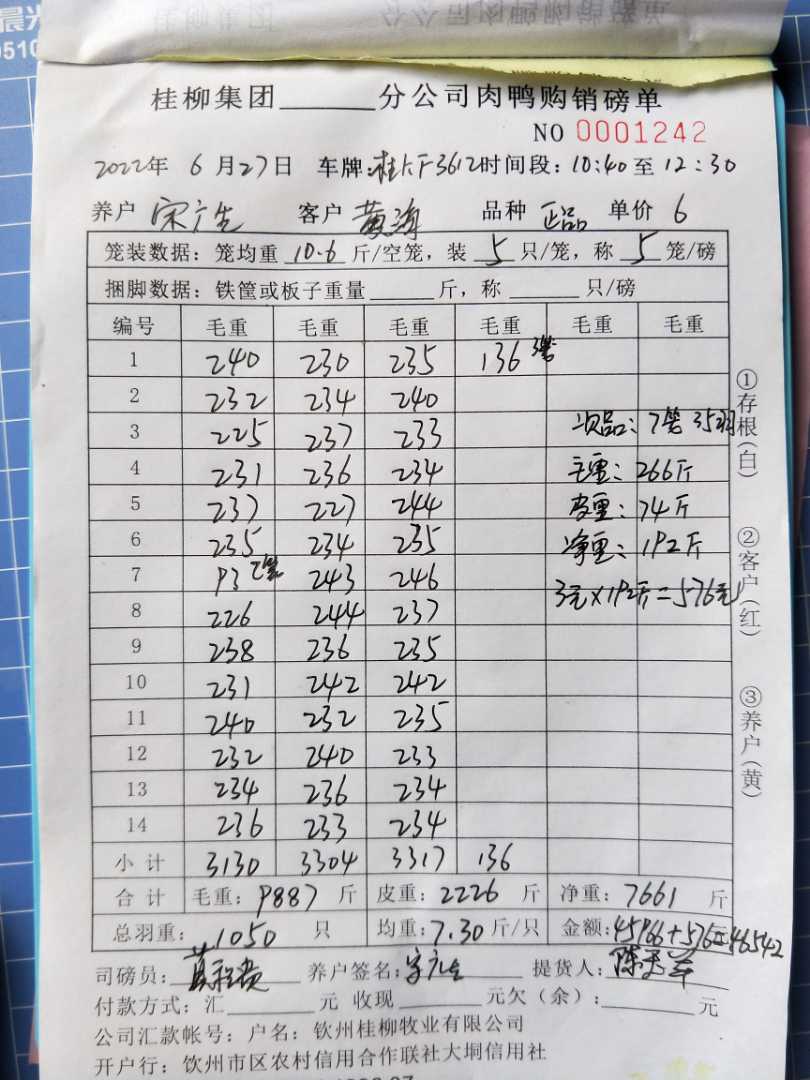 桂柳集团______分公司肉鸭购销磅单
NO 0001242
2022年 6月27日 车牌:桂AF3612时间段:10:40至12:30
养户 宋广先 客户 黄海 品种 正品 单价 6
笼装数据:笼均重 10.6 斤/空笼,装 5 只/笼,称 5 笼/磅
捆脚数据:铁筐或板子重量______斤,称______只/磅
编号 毛重 毛重 毛重 毛重 毛重 毛重
1 240 230 235 136 3笼
2 232 234 240
3 225 237 233 次品:7笼 35羽
4 231 236 234 毛重:266斤
5 237 227 244 皮重:74斤
6 235 234 235 净重:192斤
7 93 2笼 243 246 3元×192斤=576元
8 226 244 237
9 238 236 235
10 231 242 242
11 240 232 235
12 232 240 233
13 234 236 234
14 236 233 234
小计 3130 3304 3317 136
合计 毛重:9887斤 皮重:2226斤 净重:7661斤
总羽重:1050只 均重:7.30斤/只 金额:45966+576=46542
司磅员: 养户签名:宋广先 提货人:
付款方式:汇______元 收现______元欠(余):______元
公司汇款帐号:户名:钦州桂柳牧业有限公司
开户行:钦州市区农村信用合作联社大垌信用社
①存根(白)
②客户(红)
③养户(黄)